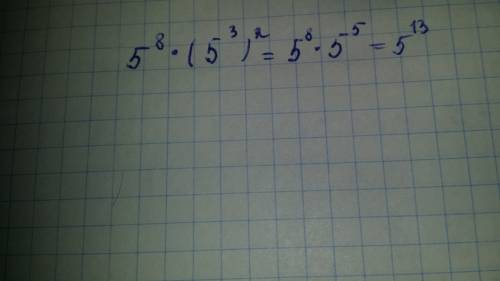 5⁸ · (5³)² = 5⁸ · 5⁵ = 5¹³